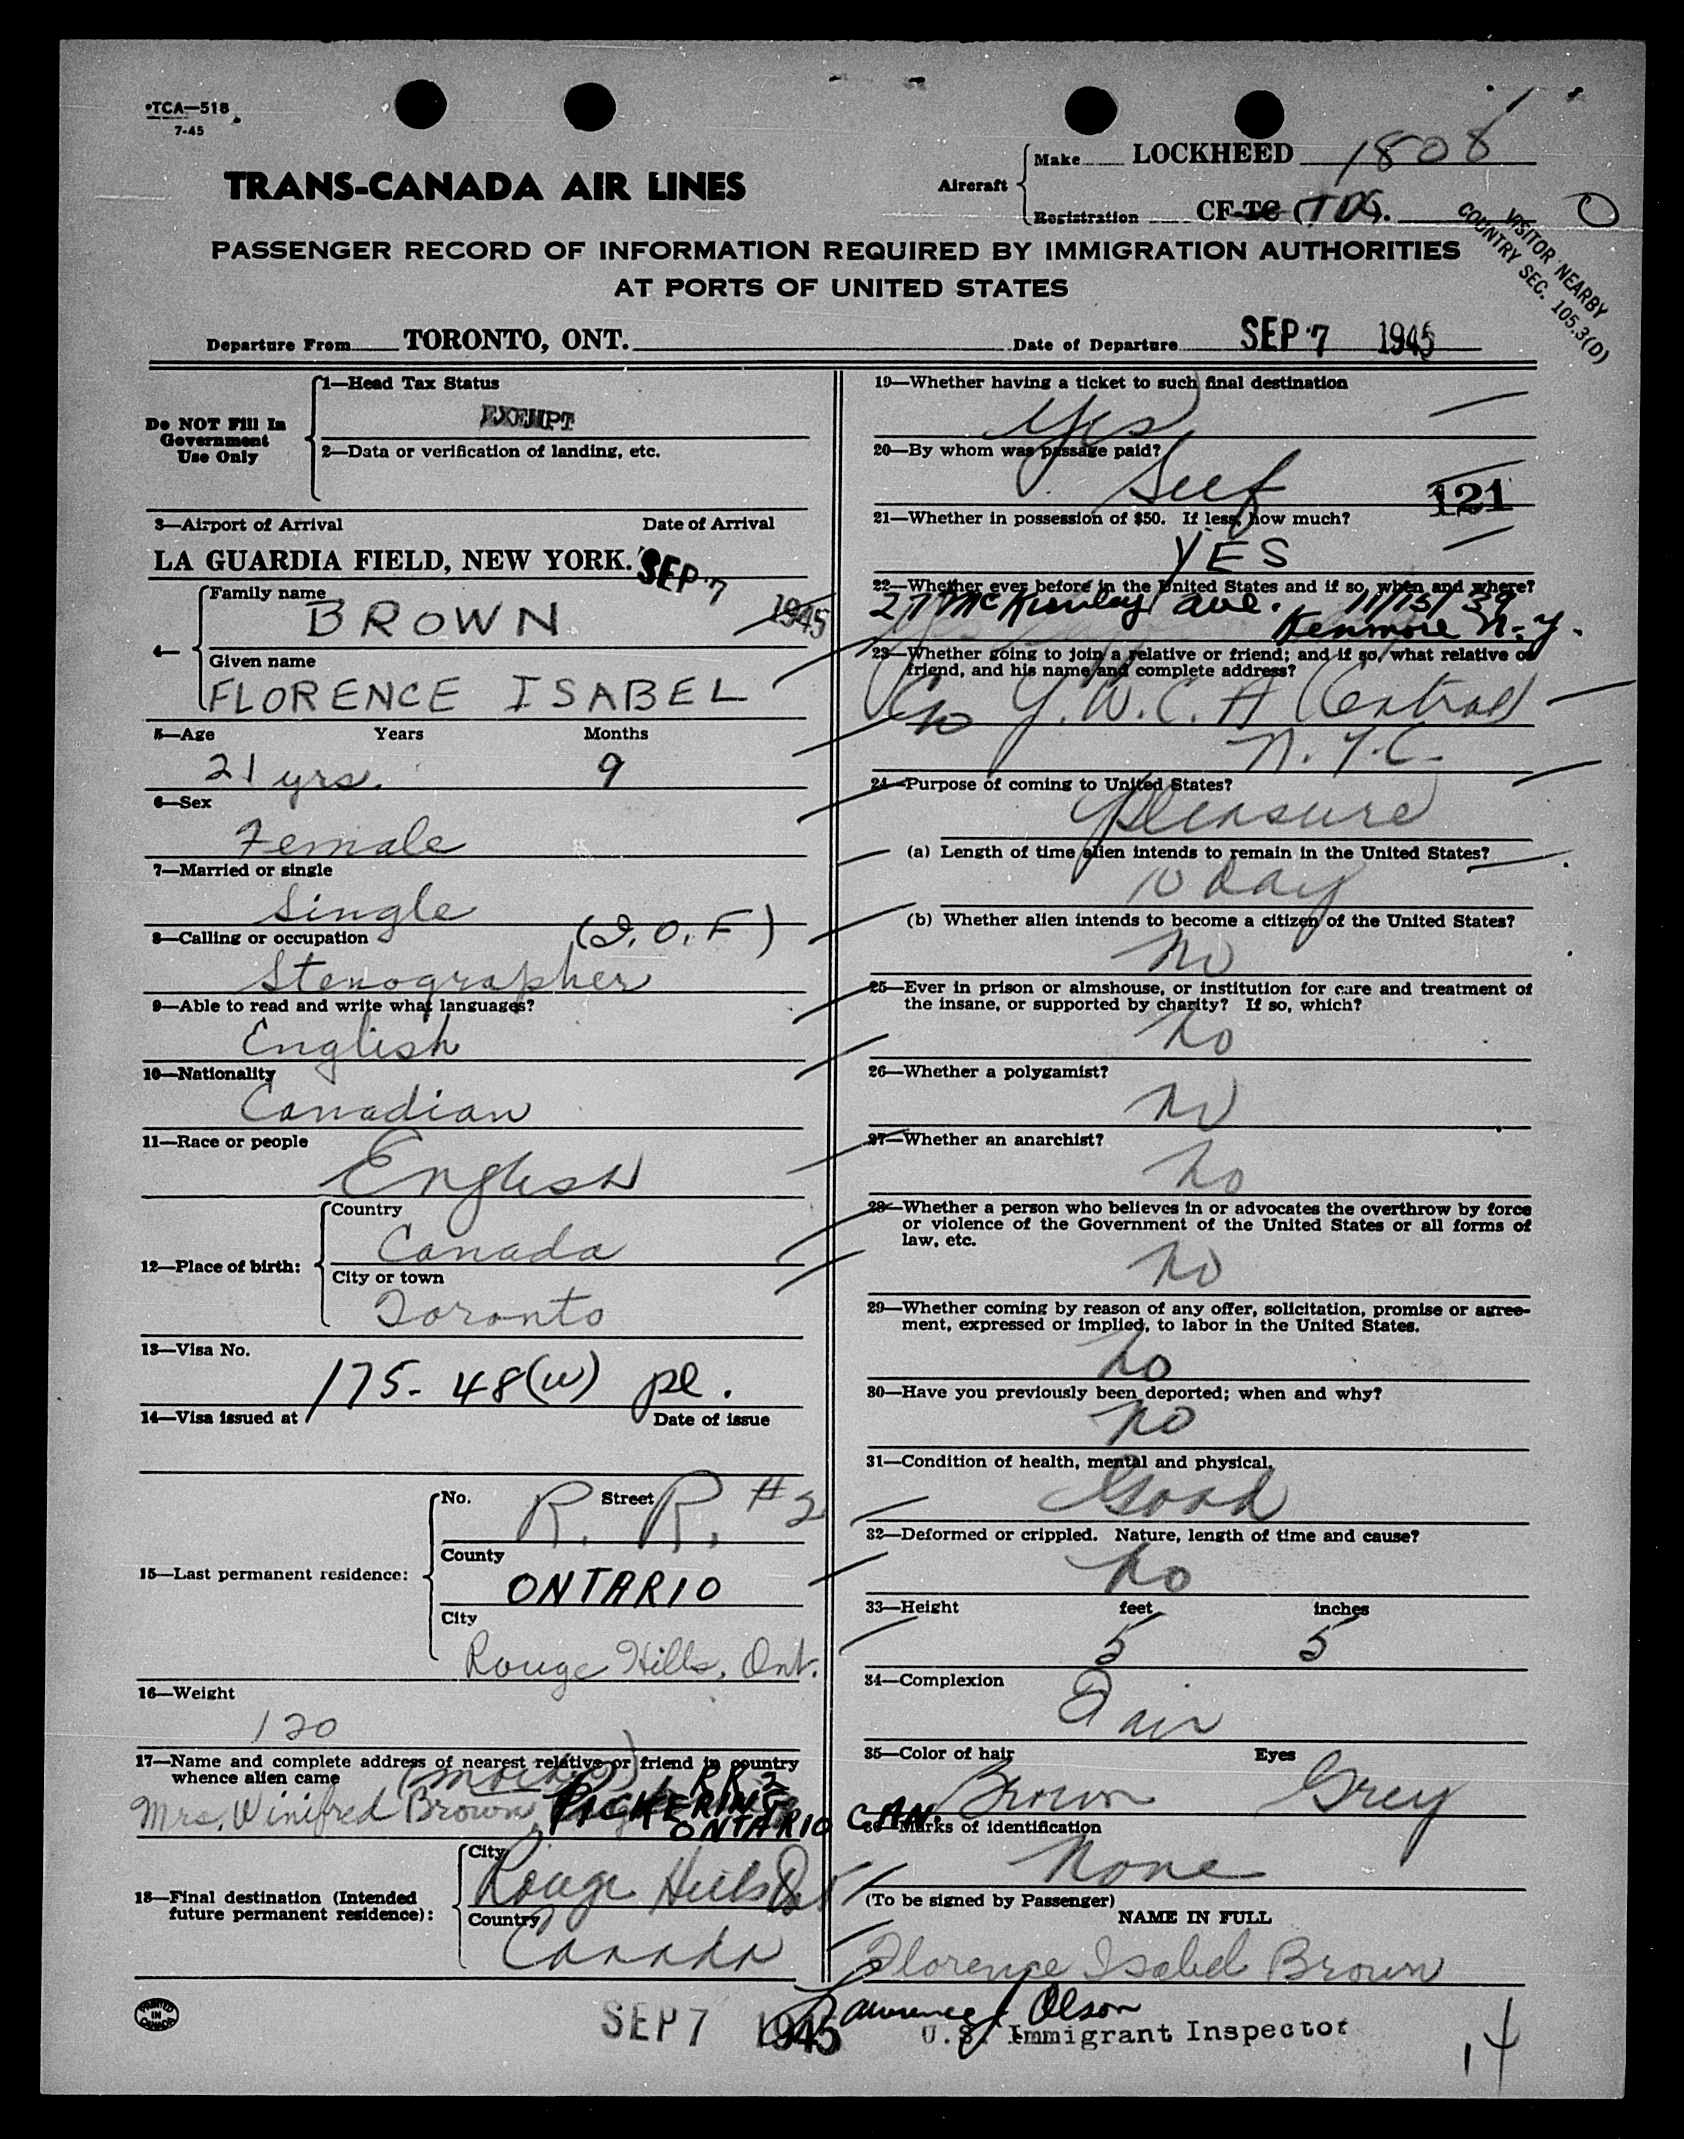 TCA—518
7-45
TRANS-CANADA AIR LINES
Aircraft
Make LOCKHEED 1808
Registration CF-TC TDG.
VISITOR NEARBY
COUNTRY SEC. 105.3(D)
PASSENGER RECORD OF INFORMATION REQUIRED BY IMMIGRATION AUTHORITIES
AT PORTS OF UNITED STATES
Departure From TORONTO, ONT. Date of Departure SEP 7 1945
Do NOT Fill In
Government
Use Only
1—Head Tax Status
EXEMPT
2—Data or verification of landing, etc.
3—Airport of Arrival Date of Arrival
LA GUARDIA FIELD, NEW YORK. SEP 7 1945
4—
Family name
BROWN
Given name
FLORENCE ISABEL
5—Age Years Months
21 yrs. 9
6—Sex
Female
7—Married or single
Single
8—Calling or occupation (I.O.F)
Stenographer
9—Able to read and write what languages?
English
10—Nationality
Canadian
11—Race or people
English
12—Place of birth:
Country
Canada
City or town
Toronto
13—Visa No.
175-48(w) pl.
14—Visa issued at Date of issue
15—Last permanent residence:
No. Street
R. R. #2
County
ONTARIO
City
Rouge Hills, Ont.
16—Weight
120
17—Name and complete address of nearest relative or friend in country
whence alien came
(mother) RR 2
Mrs. Winifred Brown, PICKERING
ONTARIO CAN.
18—Final destination (Intended
future permanent residence):
City
Rouge Hills Ont
Country
Canada
PRINTED
IN
CANADA
SEP 7 1945
19—Whether having a ticket to such final destination
Yes
20—By whom was passage paid?
Self
121
21—Whether in possession of $50. If less, how much?
YES
22—Whether ever before in the United States and if so, when and where?
27 McKinley ave. 11/13/39
Kenmore N.Y.
23—Whether going to join a relative or friend; and if so, what relative or
friend, and his name and complete address?
No Y.W.C.A Central
N.Y.C.
24—Purpose of coming to United States?
Pleasure
(a) Length of time alien intends to remain in the United States?
10 day
(b) Whether alien intends to become a citizen of the United States?
No
25—Ever in prison or almshouse, or institution for care and treatment of
the insane, or supported by charity? If so, which?
No
26—Whether a polygamist?
No
27—Whether an anarchist?
No
28—Whether a person who believes in or advocates the overthrow by force
or violence of the Government of the United States or all forms of
law, etc.
No
29—Whether coming by reason of any offer, solicitation, promise or agree-
ment, expressed or implied, to labor in the United States.
No
30—Have you previously been deported; when and why?
No
31—Condition of health, mental and physical.
Good
32—Deformed or crippled. Nature, length of time and cause?
No
33—Height feet inches
5 5
34—Complexion
Fair
35—Color of hair Eyes
Brown Grey
36—Marks of identification
None
(To be signed by Passenger)
NAME IN FULL
Florence Isabel Brown
Lawrence J Olson
U.S. Immigrant Inspector
14